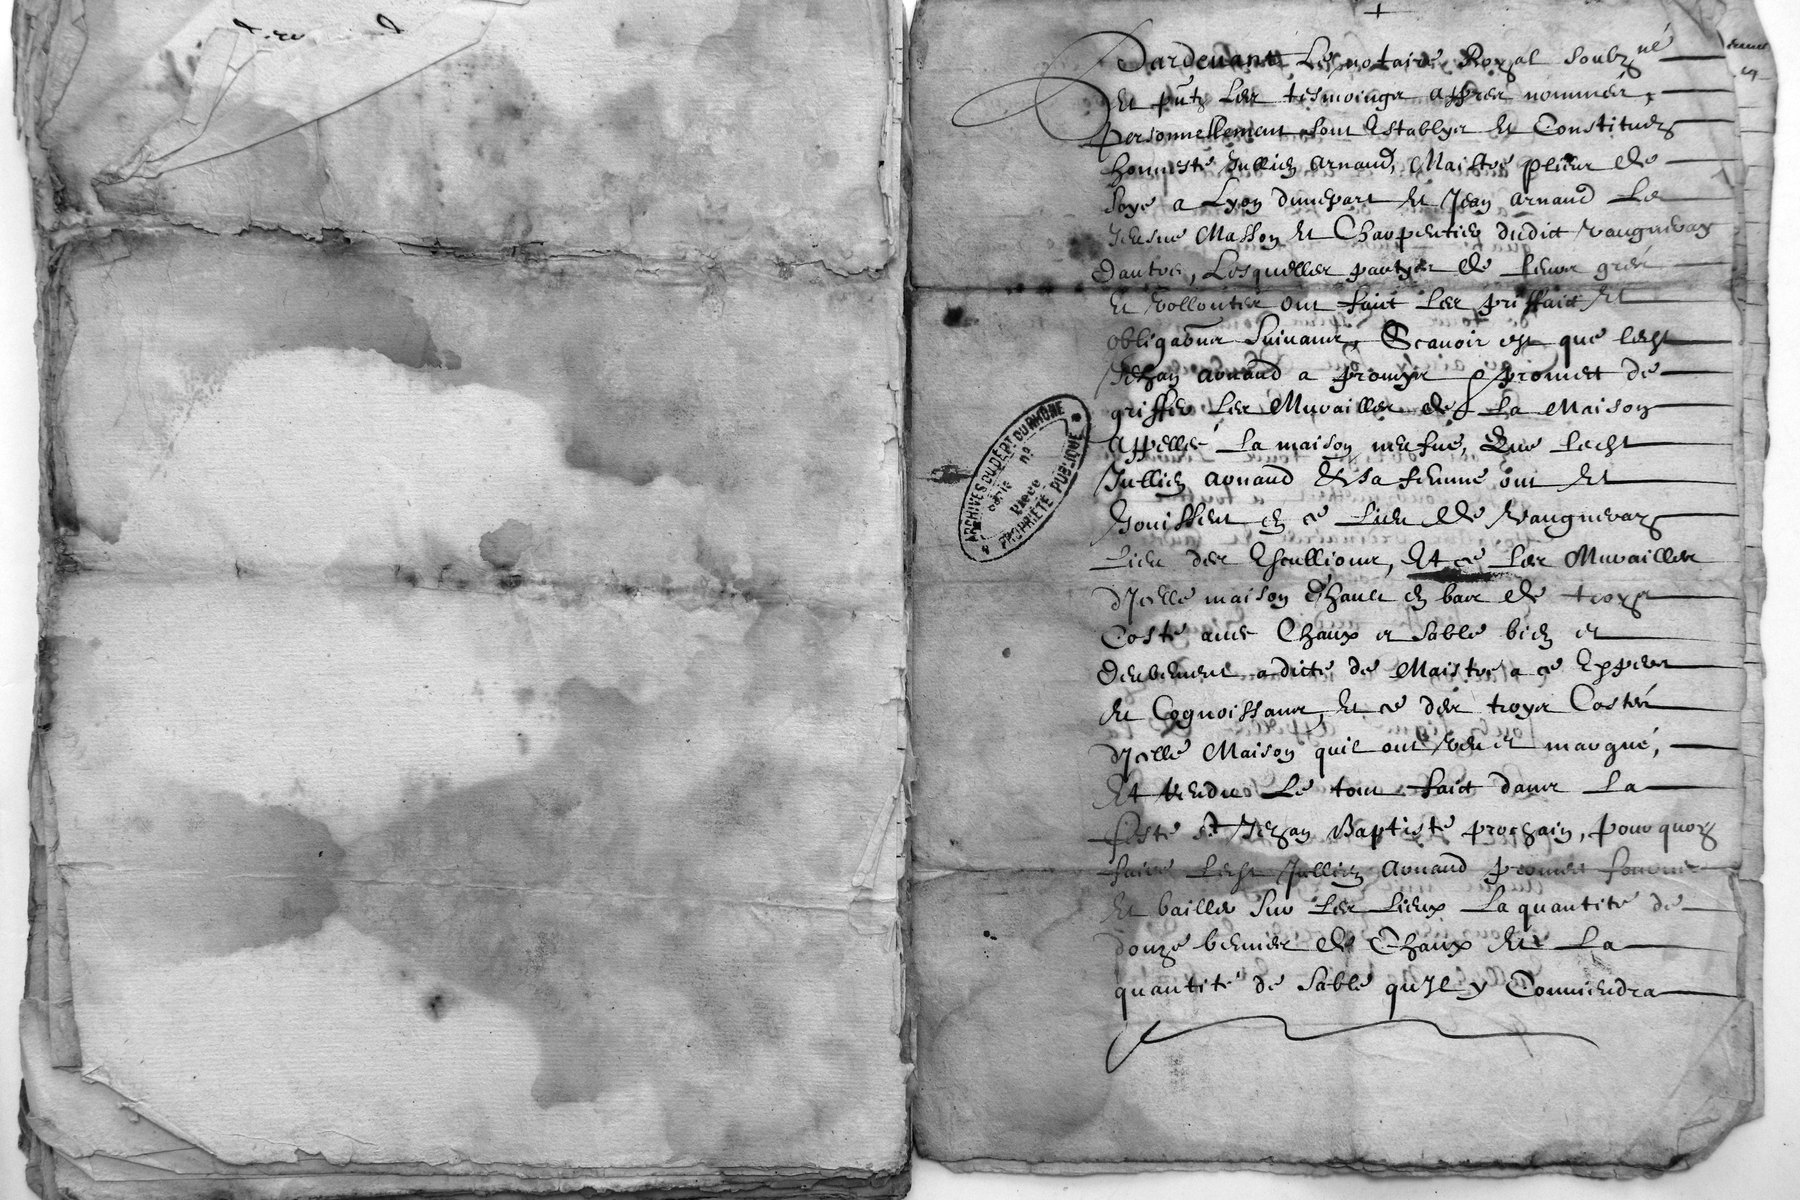 Pardevant Le notaire Royal soubzné
Et pntz Les tesmoingz appres nommés,
personnellement sont Establys Et Constitues
honneste Jullien Arnaud, Maistre plieur de
soye a Lyon dunepart Et Jean Arnaud Le
Jeusne Masson Et Charpentier dudit vaugneray
dautre, Lesquelles partyes de leurs grés
Et vollontes ont faict Les priffaict Et
obligaons suivants, Scavoir est que ledit
Jehan Arnaud a promys & promect de
griffer Les Muvailles de La Maison
Appellé La maison neufve, Que ledit
Jullien Arnaud & sa femme ont Et
Jouissent en ce Lieu de Vaugneray
Lieu des Escullions, Et ce Les Muvailles
d'Icelle maison d'hault en bas de troys
Costé avec Chaux et sable bien et
deubement a dicte de Maistre a ce Expert
Et Cognoissans, Et ce des troys Costés
d'Icelle Maison quil ont veu et marqué,
Et Rendre Le tout faict dans La
feste St Jehan Baptiste prochain, pour quoy
faire ledit Jullien Arnaud promect fournir
Et bailler sur Les Lieux La quantité de
douze bennes de Chaux Et La
quantité de sable qu'Il y Conviendra
ARCHIVES DU DEPT DU RHÔNE
série n°
pièce
PROPRIÉTÉ PUBLIQUE